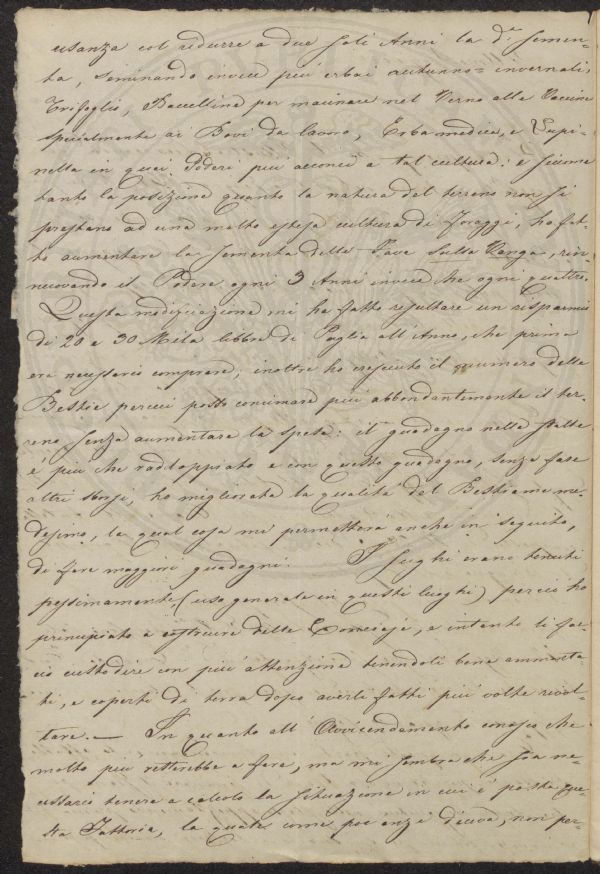 usanza col ridurre a due soli Anni la d.a Semen-
ta, seminando invece più erbai autunno=invernali,
Trifoglio, Baccellina per macinare nel Verno alle Vaccine
specialmente ai Bovi da lavoro, Erba medica, e Lupi-
nella in quei Poderi più acconci a tal cultura: e siccome
tanto la posizione quanto la natura del terreno non si
prestano ad una molto estesa cultura di Foraggi, ho fat-
to aumentare la sementa delle Fave sulla Vanga, rin-
nuovando il Podere ogni 3 Anni invece che ogni quattro.
Questa modificazione mi ha fatto resultare un risparmio
di 20 a 30 Mila libbre di Paglia all'Anno, che prima
era necessario comprare; inoltre ho cresciuto il numero delle
Bestie perciò posso concimare più abbondantemente il ter-
reno senza aumentare la spesa: il guadagno nelle stalle
è più che raddoppiato e con questo guadagno, senza fare
altri sborsi, ho migliorata la qualità del Bestiame me-
desimo, la qual cosa mi permetterà anche in seguito,
di fare maggiori guadagni. I sughi erano tenuti
pessimamente, (uso generale in questi luoghi) perciò ho
principiato a costruire delle Concimaje, e intanto li fac-
cio custodire con più attenzione tenendoli bene ammonta-
ti, e coperti di terra dopo averli fatti più volte rivol-
tare. — In quanto all'Avvicendamento conosco che
molto più resterebbe a fare, ma mi sembra che sia ne-
cessario tenere a calcolo la situazione in cui è posta que-
sta Fattoria, la quale come poc'anzi diceva, non per-